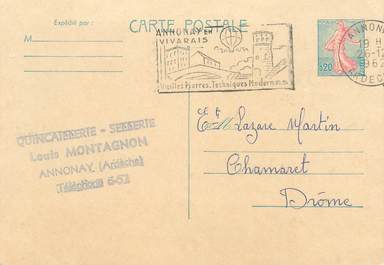 Expédié par :
M
CARTE POSTALE
ANNONAY EN
VIVARAIS
Vieilles Pierres, Techniques Modernes
ANNONAY
19 H
26-1
1962
ARDECHE
0,20
QUINCAILLERIE - SELLERIE
Louis MONTAGNON
ANNONAY, (Ardèche)
Téléphone 6-57
Ets Lazare Martin
Chamaret
Drôme